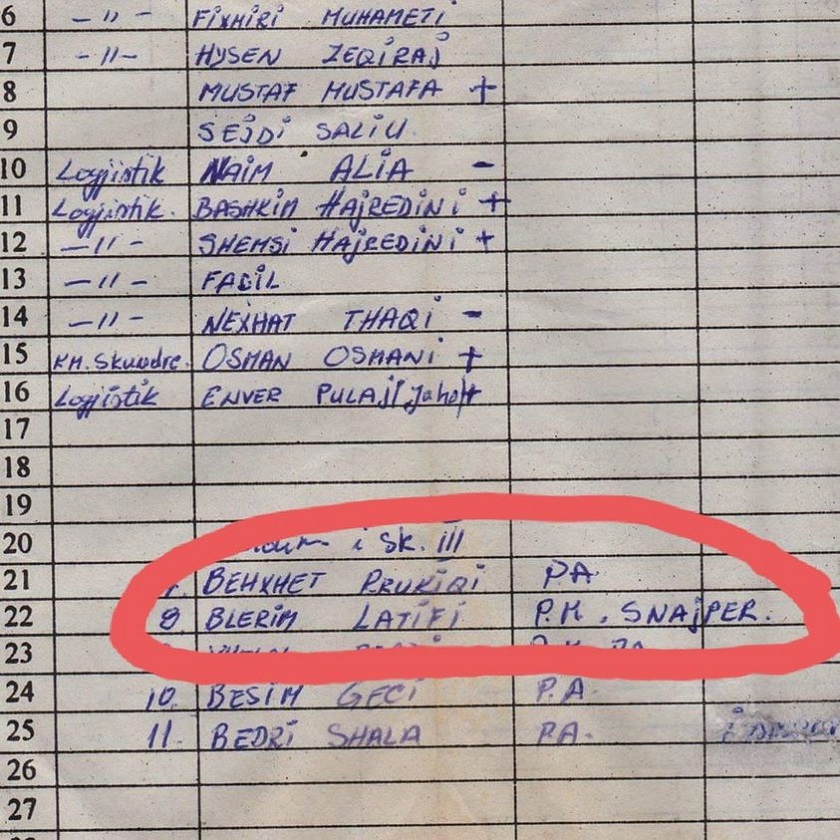 6 -"- FIXHIRI MUHAMETI
7 -"- HYSEN ZEQIRAJ
8 MUSTAF MUSTAFA +
9 SEJDI SALIU
10 Logjistik NAIM ALIA -
11 Logjistik. BASHKIM HAJREDINI +
12 -"- SHEMSI HAJREDINI +
13 -"- FADIL
14 -"- NEXHAT THAQI -
15 KM. Skuadre. OSMAN OSMANI +
16 Logjistik ENVER PULAJ
17
18
19
20 i Sk. III
21 BEHXHET RRUKIQI PA
22 8 BLERIM LATIFI P.M. SNAJPER.
23
24 10. BESIM GECI P.A.
25 11. BEDRI SHALA P.A.
26
27